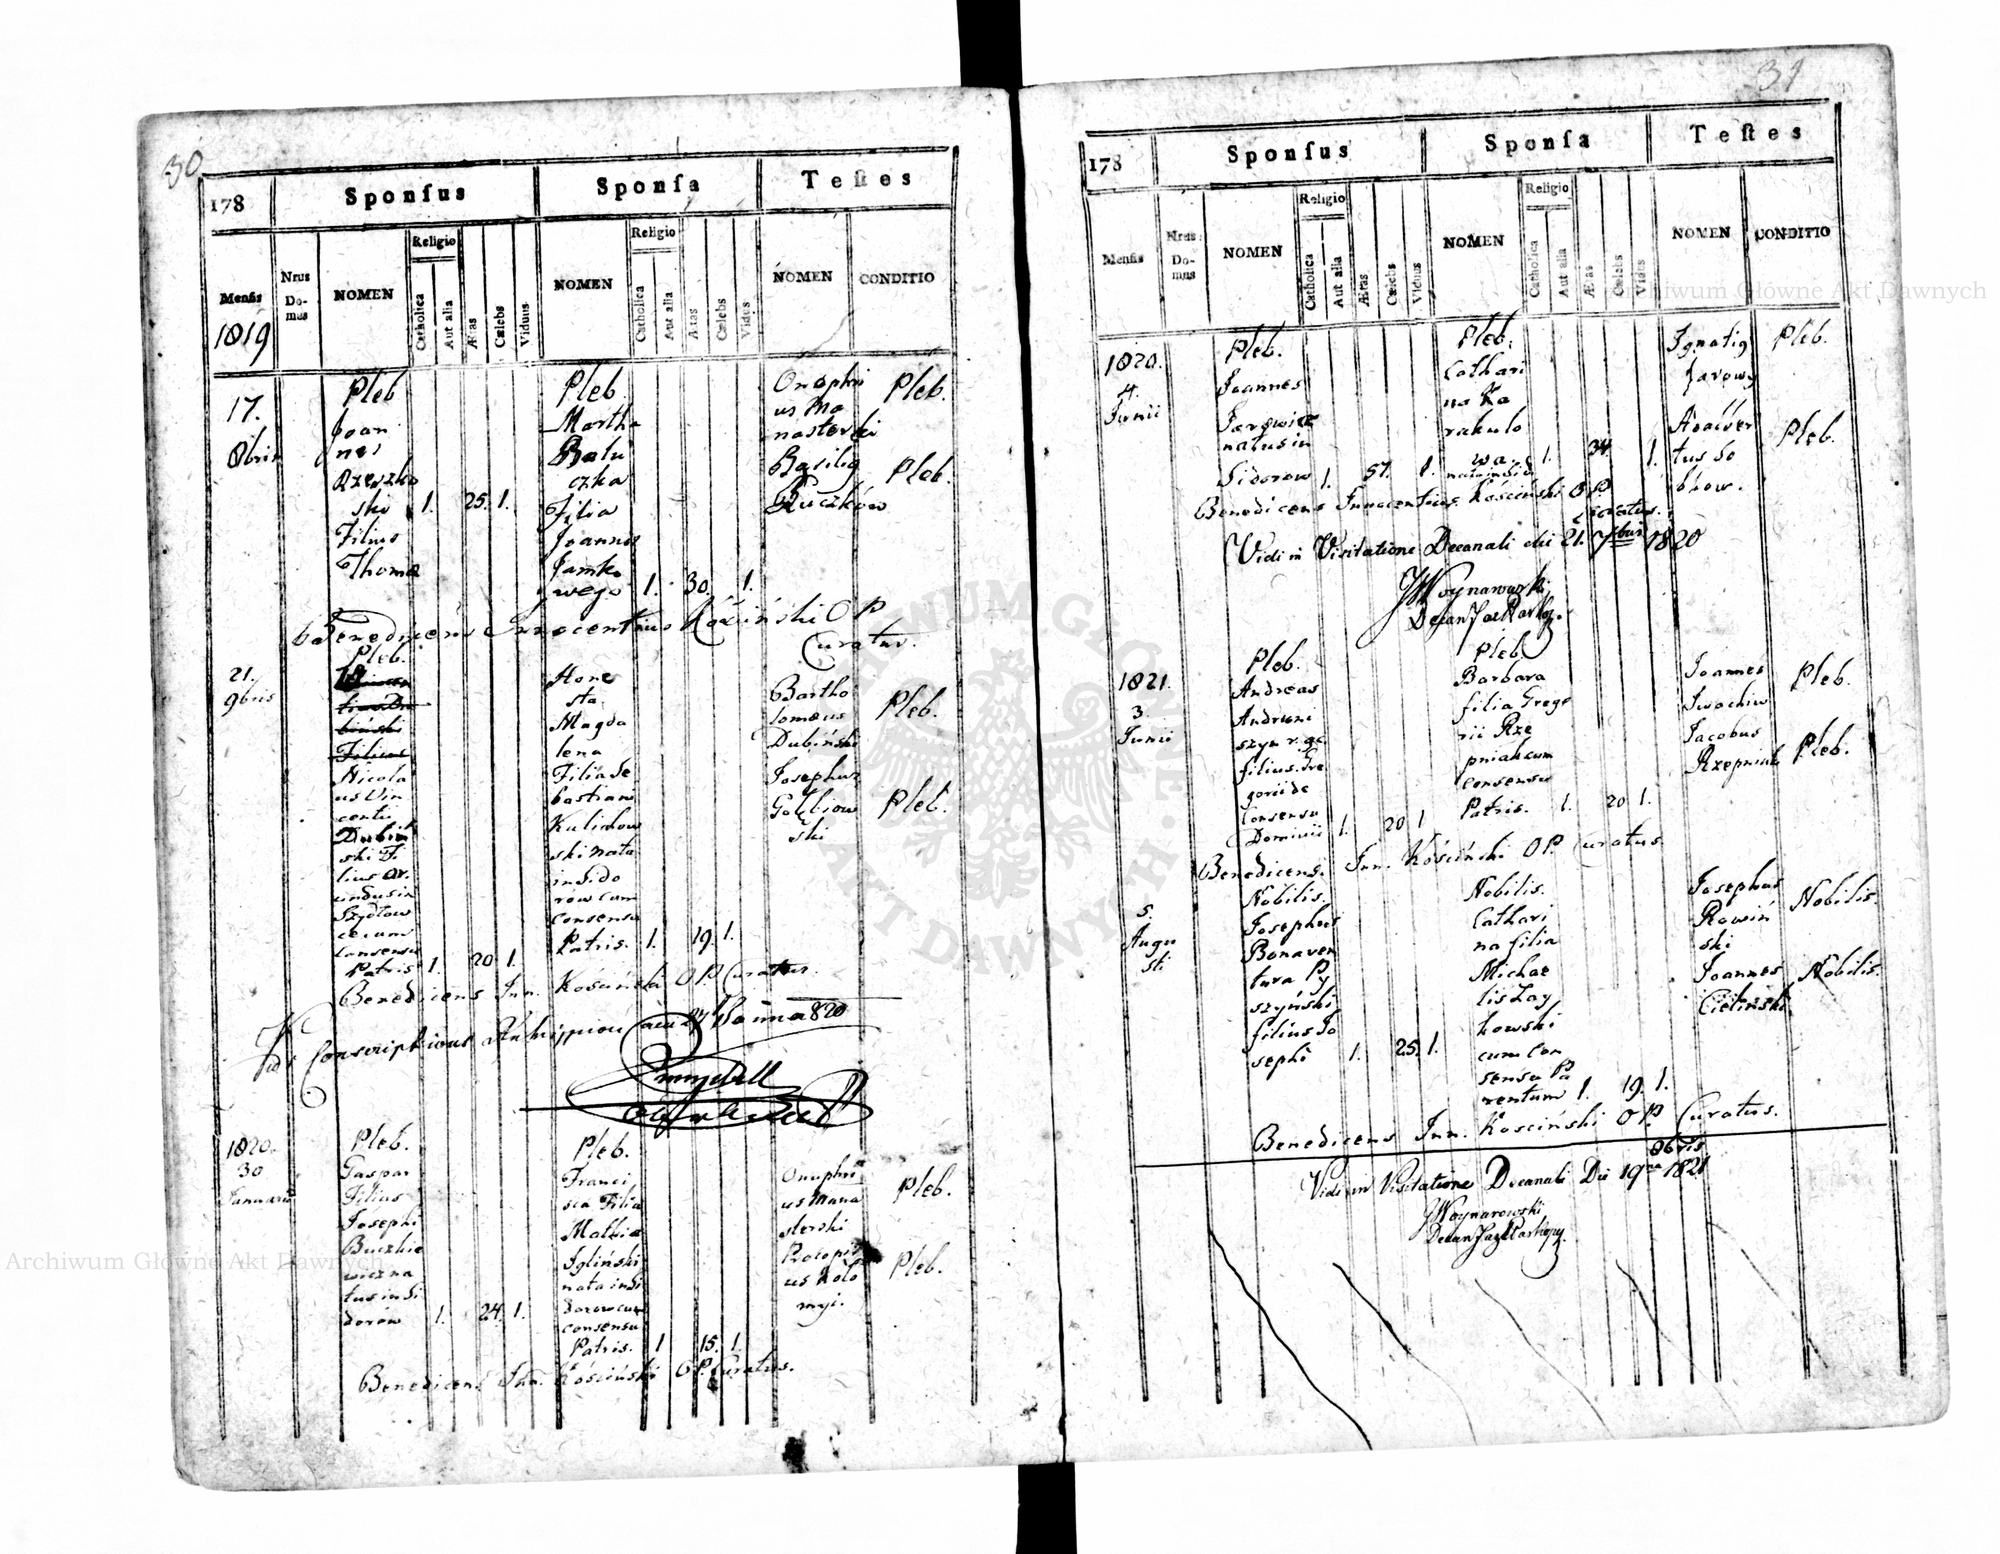 30.
178
Sponſus
Sponſa
Teſtes
Menſis
1819
Nrus Do-mus
NOMEN
Religio
Catholica
Aut alia
Ætas
Cælebs
Viduus
NOMEN
Religio
Catholica
Aut alia
Ætas
Cælebs
Vidus
NOMEN
CONDITIO
17.
8bris
Pleb
Joan
nes
Rzeszko
ski 1. 25. 1.
Filius
Thoma
Pleb
Martha
Balu
czka
Filia
Joannis
Jamko
wego 1. 30. 1.
Onophri
us Mo
nasterski
Basilig
Buczków
Pleb.
Pleb.
Benedicens Innocentius Kościński O P
Curatus.
21.
9bris
Pleb.
Nicola
us Vin
centi
Dubin
ski Fi
lius or.
iundus in
Szydłow
ce cum
consensu
Patris 1. 20 1.
Hone
sta
Magda
lena
Filia Se
bastiani
Kulichow
ski nata
in Sido
row cum
consensu
Patris. 1. 19. 1.
Bartho
lomæus
Dubiński
Josephus
Gołębiow
ski
Pleb.
Pleb.
Benedicens Inn. Kościński O.P. Curatus.
820
1820.
30
Januarii
Pleb.
Gaspar
Filius
Josephi
Buczkie
wicz na
tus in Si
dorów 1. 24. 1.
Pleb.
Franci
sca Filia
Mathia
Igliński
nata in Si
dorow cum
consensu
Patris. 1 15. 1.
Onuphri
us Mana
sterski
Procopi
us Koło
myi.
Pleb.
Pleb.
Benedicens Inn. Kościński O.P. Curatus.
31
178
Sponſus
Sponſa
Teſtes
Menſis
Nrus Do-mus
NOMEN
Religio
Catholica
Aut alia
Ætas
Cælebs
Viduus
NOMEN
Religio
Catholica
Aut alia
Ætas
Cælebs
Vidus
NOMEN
CONDITIO
1820.
4.
Junii
Pleb.
Joannes
Jarowice
natus in
Sidorow 1. 57. 1.
Pleb.
Cathari
na Ka
rakulo
wa 1. 34. 1.
Ignatig
Jarowy
Adalber
tus So
bkow.
Pleb.
Pleb.
Benedicens Innocentius Kościński O.P.
Curatus.
Vidi in Visitatione Decanali die 21. 7bris 1820
JWoynarowski
1821.
3.
Junii
Pleb.
Andreas
Andruni
szyn
filius Gre
gorii de
consensu
Dominii 1. 20 1
Pleb.
Barbara
filia Grego
rii Rze
pniak cum
consensu
Patris. 1. 20 1.
Joannes
Iwachiw
Jacobus
Rzepniak
Pleb.
Pleb.
Benedicens Inn. Kościński O.P. Curatus.
5.
Augu
sti
Nobilis.
Josephus
Bonaven
tura Py
szyński
filius Jo
sephi 1. 25. 1.
Nobilis.
Cathari
na filia
Michae
lis Zay
kowski
cum con
sensu Pa
rentum 1. 19. 1.
Josephus
Rowiń
ski
Joannes
Cieliński
Nobilis.
Nobilis.
Benedicens Inn. Kosciński O P. Curatus.
Vidi in Visitatione Decanali Die 19na 8bris 1821
JWoynarowski
Archiwum Główne Akt Dawnych
Archiwum Główne Akt Dawnych
ARCHIWUM GŁÓWNE · AKT DAWNYCH ·